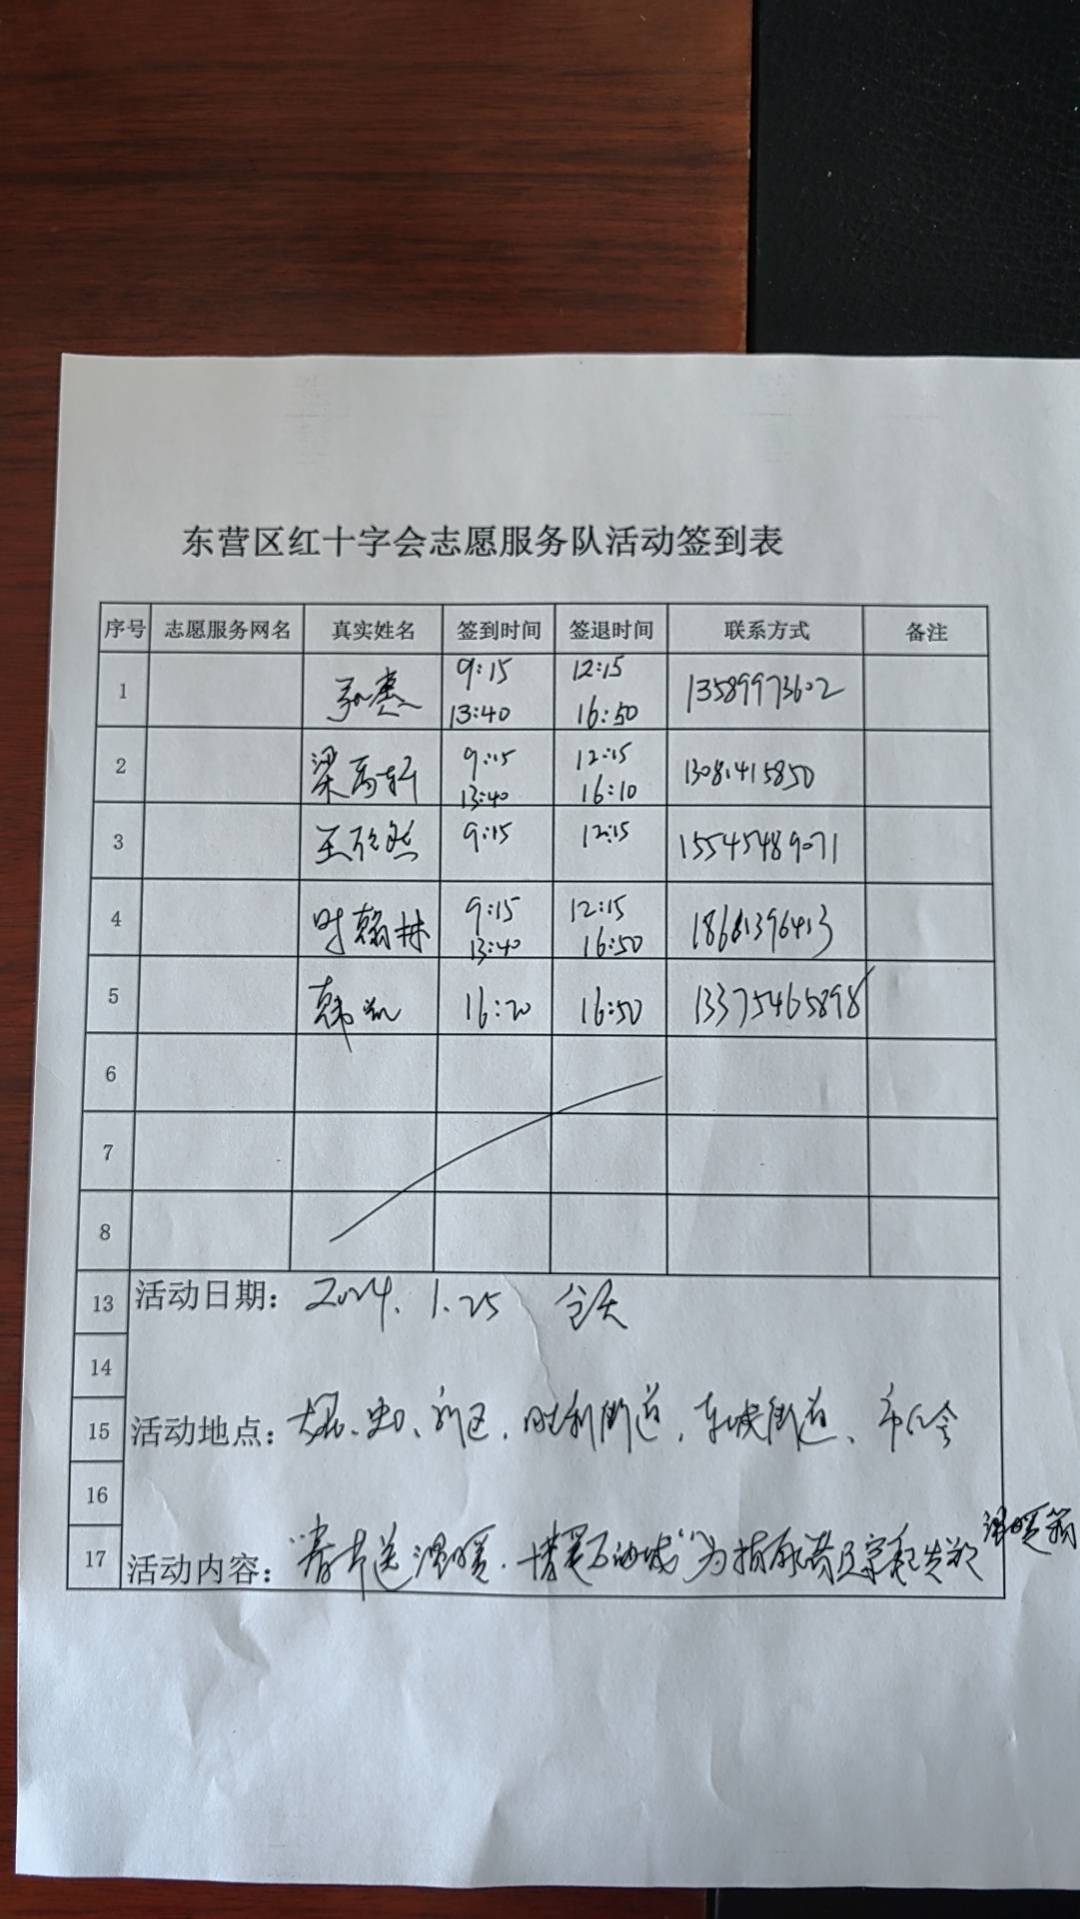 东营区红十字会志愿服务队活动签到表
序号 志愿服务网名 真实姓名 签到时间 签退时间 联系方式 备注
1 9:15 12:15 13589973602
13:40 16:50
2 梁 轩 9:15 12:15 13081415850
13:40 16:10
3 王 然 9:15 12:15 15545489071
4 时翰林 9:15 12:15
13:40 16:50
5 韩 16:20 16:50 13375465898
6
7
8
13 活动日期: 2024.1.25 全天
14
15 活动地点: 新区,胜利街道,东城街道、
16
17 活动内容: "春节送温暖·博爱石油城"为 发放
温暖箱